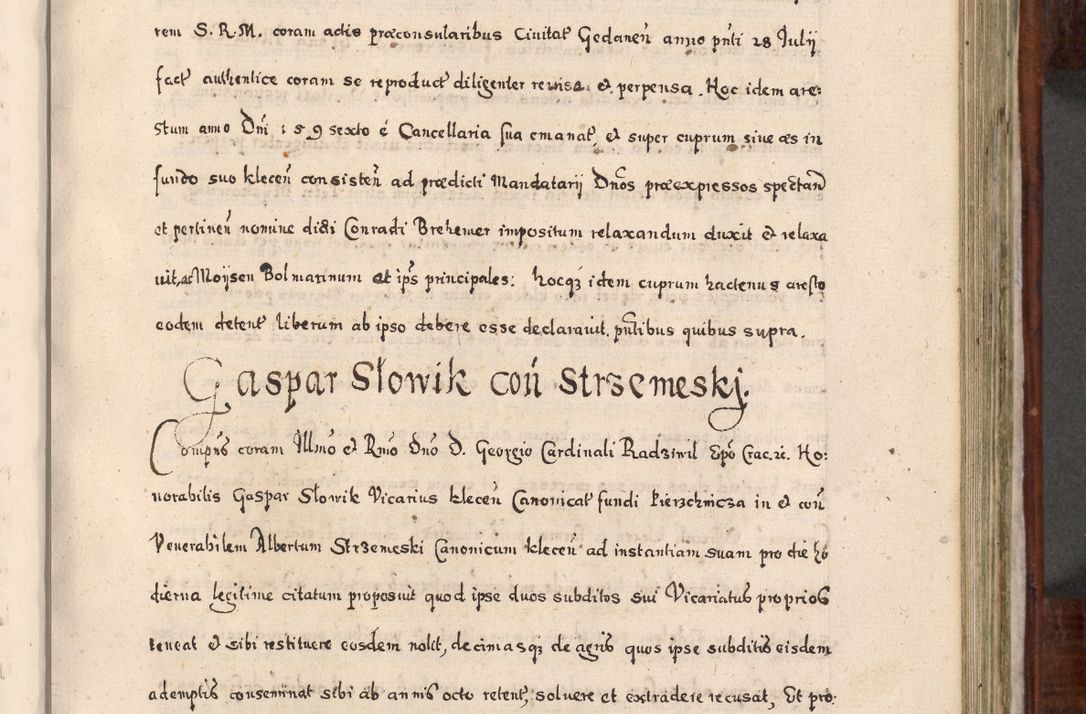 rem S. R. M. coram actis præconsularibus Civitat̃ Gedaneñ anno pñti 28 Julij
fact̃ authentice coram se reproduct̃ diligenter revisa et perpensa. Hoc idem are:
stum anno Dñi 159 sexto è Cancellaria sua emanat̃, et super cuprum sive æs in
fundo suo kleceñ consisteñ ad prædicti Mandatarij Dños præexpressos spectañ
et pertineñ nomine dicti Conradi Brehemer impositum relaxandum duxit et relaxa
vit, ac Moijsen Bolmarinum et ip̃s principales: hocq₃ idem cuprum hactenus aresto
eodem detent̃ liberum ab ipso debere esse declaravit. pñtibus quibus supra.
Gaspar Słowik coñ Strzemeskj.
Comp̃ns coram Illmo et Rmo Dño D. Georgio Cardinali Radziwil Epõ Crac. zc. Ho:
norabilis Gaspar Słowik Vicarius kleceñ Canonicat̃ fundi kierzchnicza in et coñ
Venerabilem Albertum Strzemeski Canonicum kleceñ ad instantiam suam pro die ho
dierna legitime citatum proposuit quod ipse duos subditos sui Vicariatus proprios
teneat et sibi restituere eosdem nolit, decimasq₃ de agris quos ipse subditis eisdem
ademptis conseminat sibi ab annis octo retent̃, solvere et extradere recusat, Et pro: